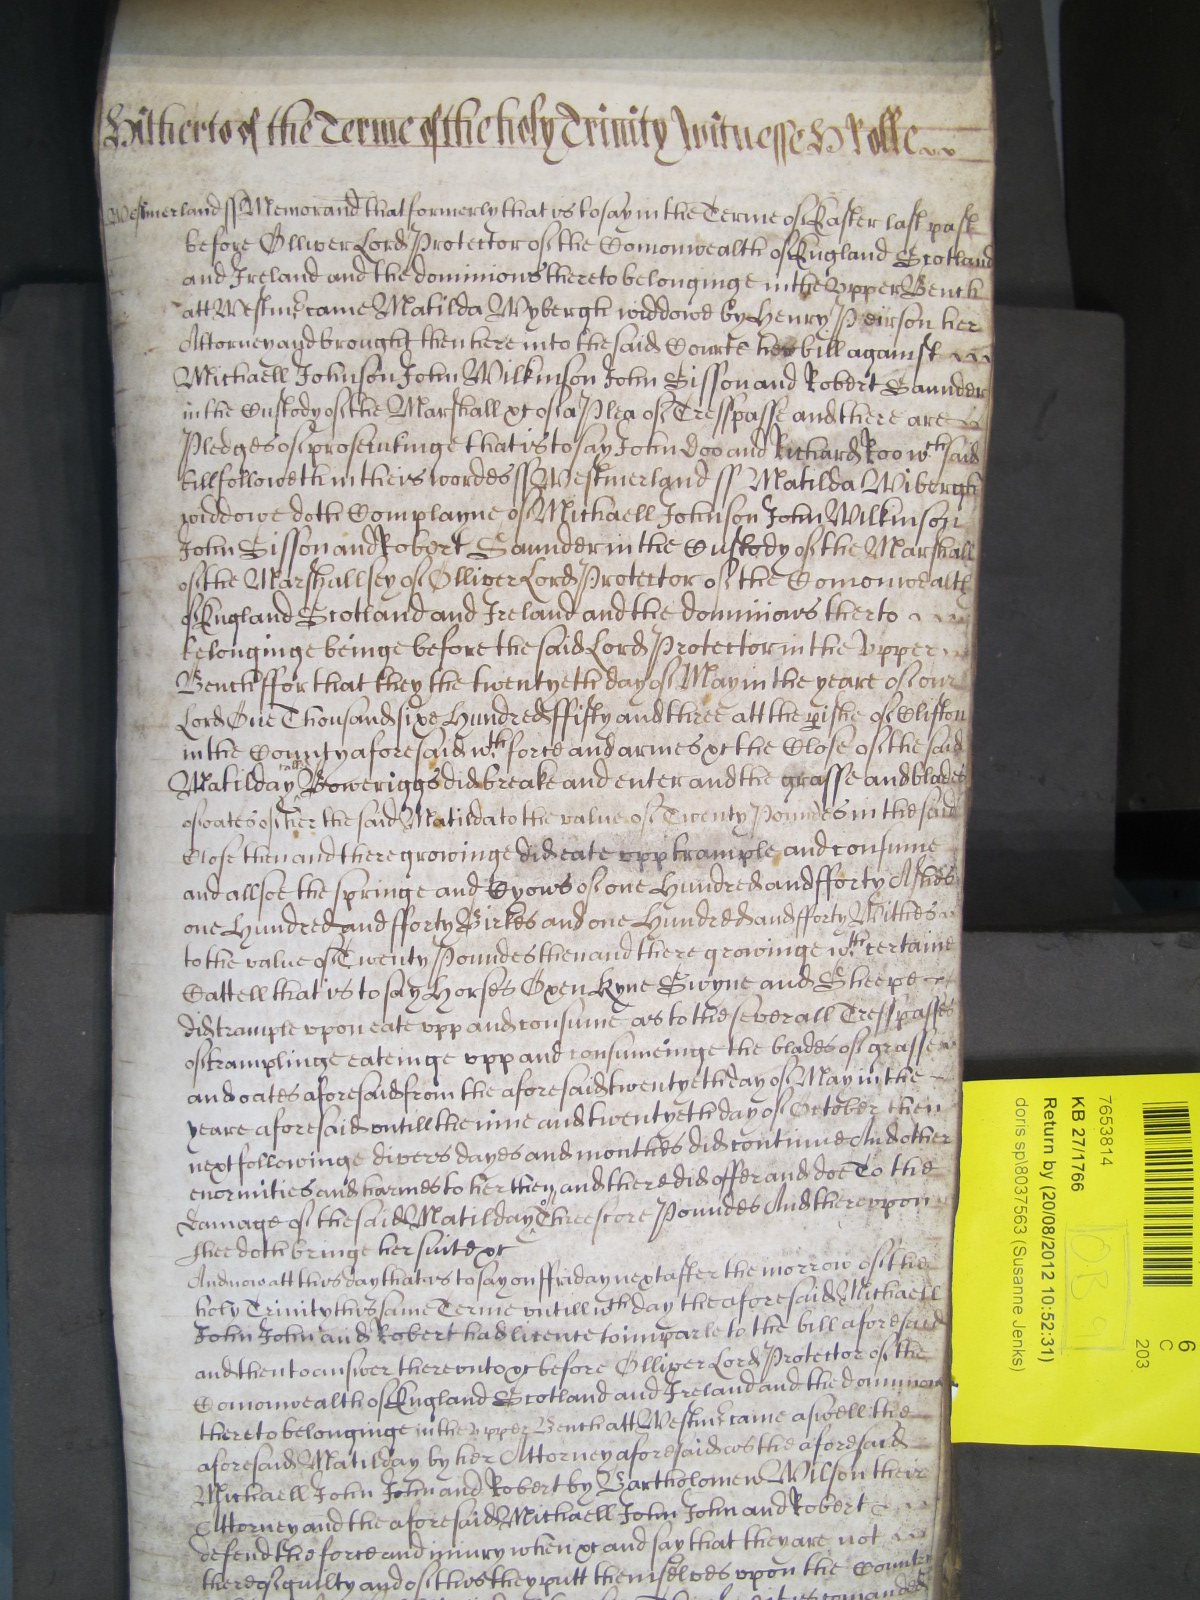 Hitherto of the Terme of the holy Trinity Witnesse H Rolle
Westmerland ss Memorand that formerly that is to say in the Terme of Easter last past
before Olliver Lord Protector of the Comonwealth of England Scotland
and Ireland and the dominions thereto belonginge in the Upper Bench
att Westmr came Matilda Wybergh widdowe by Henry Peirson her
Attorney and brought then here into the said Courte her bill against
Michaell Johnson John Wilkinson John Sisson and Robert Saunder
in the Custody of the Marshall &c of a Plea of Tresspasse and there are
Pledges of prosecutinge that is to say John Doo and Richard Roo wch said
bill followeth in theis wordes ss Westmerland ss Matilda Wibergh
widdowe doth Complayne of Michaell Johnson John Wilkinson
John Sisson and Robert Saunder in the Custody of the Marshall
of the Marshallsey of Olliver Lord Protector of the Comonwealth
of England Scotland and Ireland and the dominions therto
belonginge beinge before the said Lord Protector in the Upper
Bench ffor that they the twentyeth day of May in the yeare of our
Lord One Thousand sixe Hundred ffifty and three att the pishe of Clifton
in the County aforesaid wth force and armes &c the Close of the said
Matilday called Boweriggs did breake and enter and the grasse and blades
of oates of her the said Matilda to the value of Twenty Poundes in the said
Close then and there growinge did eate upp trample and consume
and allsoe the springe and Cyons of one Hundred and fforty Ashes
one Hundred and fforty Birkes and one Hundred and fforty Withies
to the value of Twenty Poundes then and there growinge wth certaine
Cattell that is to say Horses Oxen Kyne Swyne and Sheepe
did trample upon eate upp and consume as to the severall Tresspasses
of tramplinge eateinge upp and consumeinge the blades of grasse
and oates aforesaid from the aforesaid twentyeth day of May in the
yeare aforesaid untill the nine and twentyeth day of October then
next followinge divers dayes and monthes did continue And other
enormities and harmes to her then and there did offer and doe To the
damage of the said Matilday Threescore Poundes And thereupon
shee doth bringe her suite &c
And now att this day that is to say on ffriday next after the morrow of the
holy Trinity this same Terme untill wch day the aforesaid Michaell
John John and Robert had licence to imparle to the bill aforesaid
and then to answer thereunto &c before Olliver Lord Protector of the
Comonwealth of England Scotland and Ireland and the dominions
thereto belonginge in the Upper Bench att Westmr came aswell the
aforesaid Matilday by her Attorney aforesaid as the aforesaid
Michaell John John and Robert by Bartholomew Wilson their
Attorney and the aforesaid Michaell John John and Robert
defend the force and injury when &c and say that they are not
thereof guilty and of this they putt themselves upon the Country
comanded
6
C
203
7653814
KB 27/1766
Return by (20/08/2012 10:52:31)
doris sp\8037563 (Susanne Jenks)